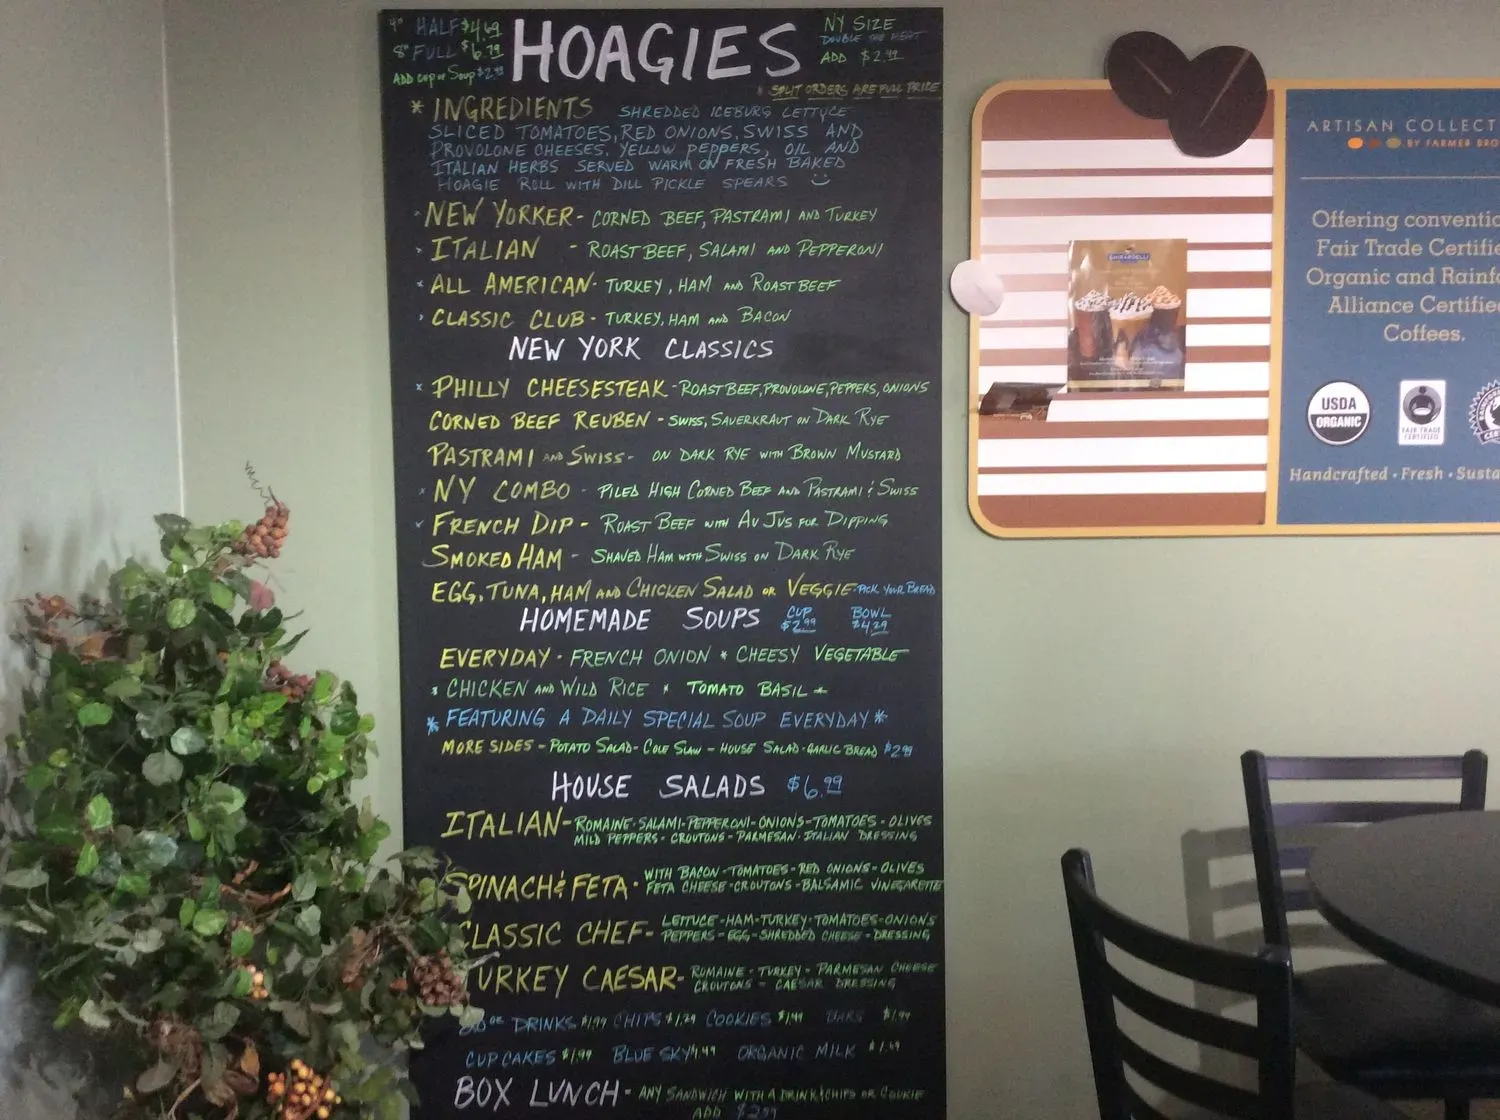 4" HALF $4.69
8" FULL $6.79
ADD CUP OF SOUP $2.99
HOAGIES
NY SIZE
DOUBLE THE MEAT
ADD $2.99
* SPLIT ORDERS ARE FULL PRICE
* INGREDIENTS SHREDDED ICEBURG LETTUCE
SLICED TOMATOES, RED ONIONS, SWISS AND
PROVOLONE CHEESES, YELLOW PEPPERS, OIL AND
ITALIAN HERBS SERVED WARM ON FRESH BAKED
HOAGIE ROLL WITH DILL PICKLE SPEARS
NEW YORKER - CORNED BEEF, PASTRAMI AND TURKEY
ITALIAN - ROAST BEEF, SALAMI AND PEPPERONI
ALL AMERICAN - TURKEY, HAM AND ROAST BEEF
CLASSIC CLUB - TURKEY, HAM AND BACON
NEW YORK CLASSICS
PHILLY CHEESESTEAK - ROAST BEEF, PROVOLONE, PEPPERS, ONIONS
CORNED BEEF REUBEN - SWISS, SAUERKRAUT ON DARK RYE
PASTRAMI AND SWISS - ON DARK RYE WITH BROWN MUSTARD
NY COMBO - PILED HIGH CORNED BEEF AND PASTRAMI & SWISS
FRENCH DIP - ROAST BEEF WITH AU JUS FOR DIPPING
SMOKED HAM - SHAVED HAM WITH SWISS ON DARK RYE
EGG, TUNA, HAM AND CHICKEN SALAD OR VEGGIE - PICK YOUR BREAD
HOMEMADE SOUPS CUP $2.99 BOWL $4.29
EVERYDAY - FRENCH ONION * CHEESY VEGETABLE
* CHICKEN AND WILD RICE * TOMATO BASIL *
* FEATURING A DAILY SPECIAL SOUP EVERYDAY *
MORE SIDES - POTATO SALAD - COLE SLAW - HOUSE SALAD - GARLIC BREAD $2.99
HOUSE SALADS $6.99
ITALIAN - ROMAINE - SALAMI - PEPPERONI - ONIONS - TOMATOES - OLIVES
MILD PEPPERS - CROUTONS - PARMESAN - ITALIAN DRESSING
SPINACH & FETA - WITH BACON - TOMATOES - RED ONIONS - OLIVES
FETA CHEESE - CROUTONS - BALSAMIC VINEGARETTE
CLASSIC CHEF - LETTUCE - HAM - TURKEY - TOMATOES - ONIONS
PEPPERS - EGG - SHREDDED CHEESE - DRESSING
TURKEY CAESAR - ROMAINE - TURKEY - PARMESAN CHEESE
CROUTONS - CAESAR DRESSING
OZ DRINKS $1.99 CHIPS $1.29 COOKIES $1.99 BARS $1.99
CUPCAKES $1.99 BLUE SKY ORGANIC MILK $1.69
BOX LUNCH - ANY SANDWICH WITH A DRINK & CHIPS OR COOKIE
ADD
GHIRARDELLI
ARTISAN COLLECT
BY FARMER BRO
Offering conventio
Fair Trade Certifie
Organic and Rainfo
Alliance Certifie
Coffees.
USDA
ORGANIC
FAIR TRADE
CERTIFIED
Handcrafted • Fresh • Susta